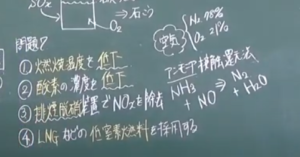 SOx
O2 ⇒石こう
問題7
① 燃焼温度を低下
② 酸素の濃度を低下
③ 排煙脱硝装置でNO2を除去
④ LNGなどの低窒素燃料を採用する
空気 N2 78%
O2 21%
アンモニア接触還元法
NH3 + NO ⇒ N2 + H2O